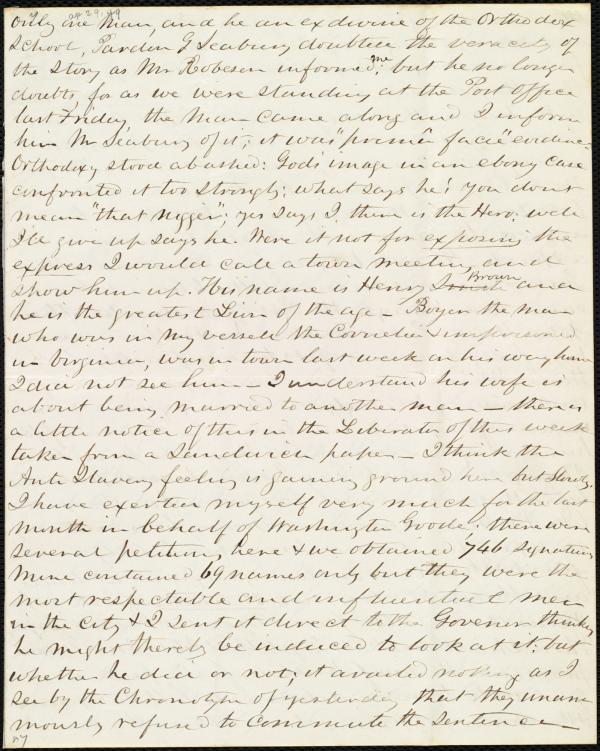 only one man, and he an ex divine of the Orthodox
School, Pardon G Seabury doubted the veracity of
the story as Mr Robeson informed me; but he no longer
doubts, for as we were standing at the Post office
last Friday the man came along and I inform
him Mr Seabury of it; it was "prima" facie" evidence
Orthodoxy stood abashed: Gods image in an ebony case
confronted it too strongly; what says he! you dont
mean "that nigger"; yes says I, there is the Hero: well
I'll give up says he. Were it not for exposing the
express I would call a town meeting and
show him up. His name is Henry Smith Brown and
he is the greatest Lion of the age – Boyer the man
who was in my vessele the Cornelia & imprisoned
in Virginia, was in town last week on his way home
I did not see him – I understand his wife is
about being married to another man – there is
a little notice of this in the Liberator of this week
taken from a Sandwich paper – I think the
Anti Slavery feeling is gaining ground here but slowly,
I have exerted myself very much for the last
month in behalf of Washington Goode; there were
several petitions here & we obtained 746 signatures
mine contained 69 names only but they were the
most respectable and influential men
in the city & I sent it direct to the Govenor thinking
he might thereby be induced to look at it; but
whether he did or not, it availed nothing as I
see by the Chronotype of yesterday that they unani
mously refused to commute the sentence –